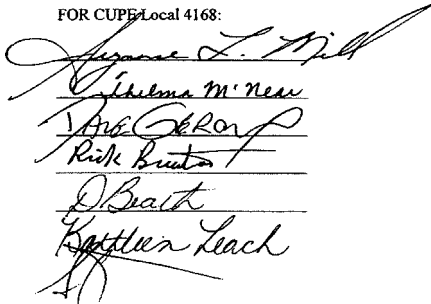 FOR CUPE Local 4168:
Suzanne L. Mill
Thelma M'Near
Dave
Rick
D Beath
Kathleen Leach